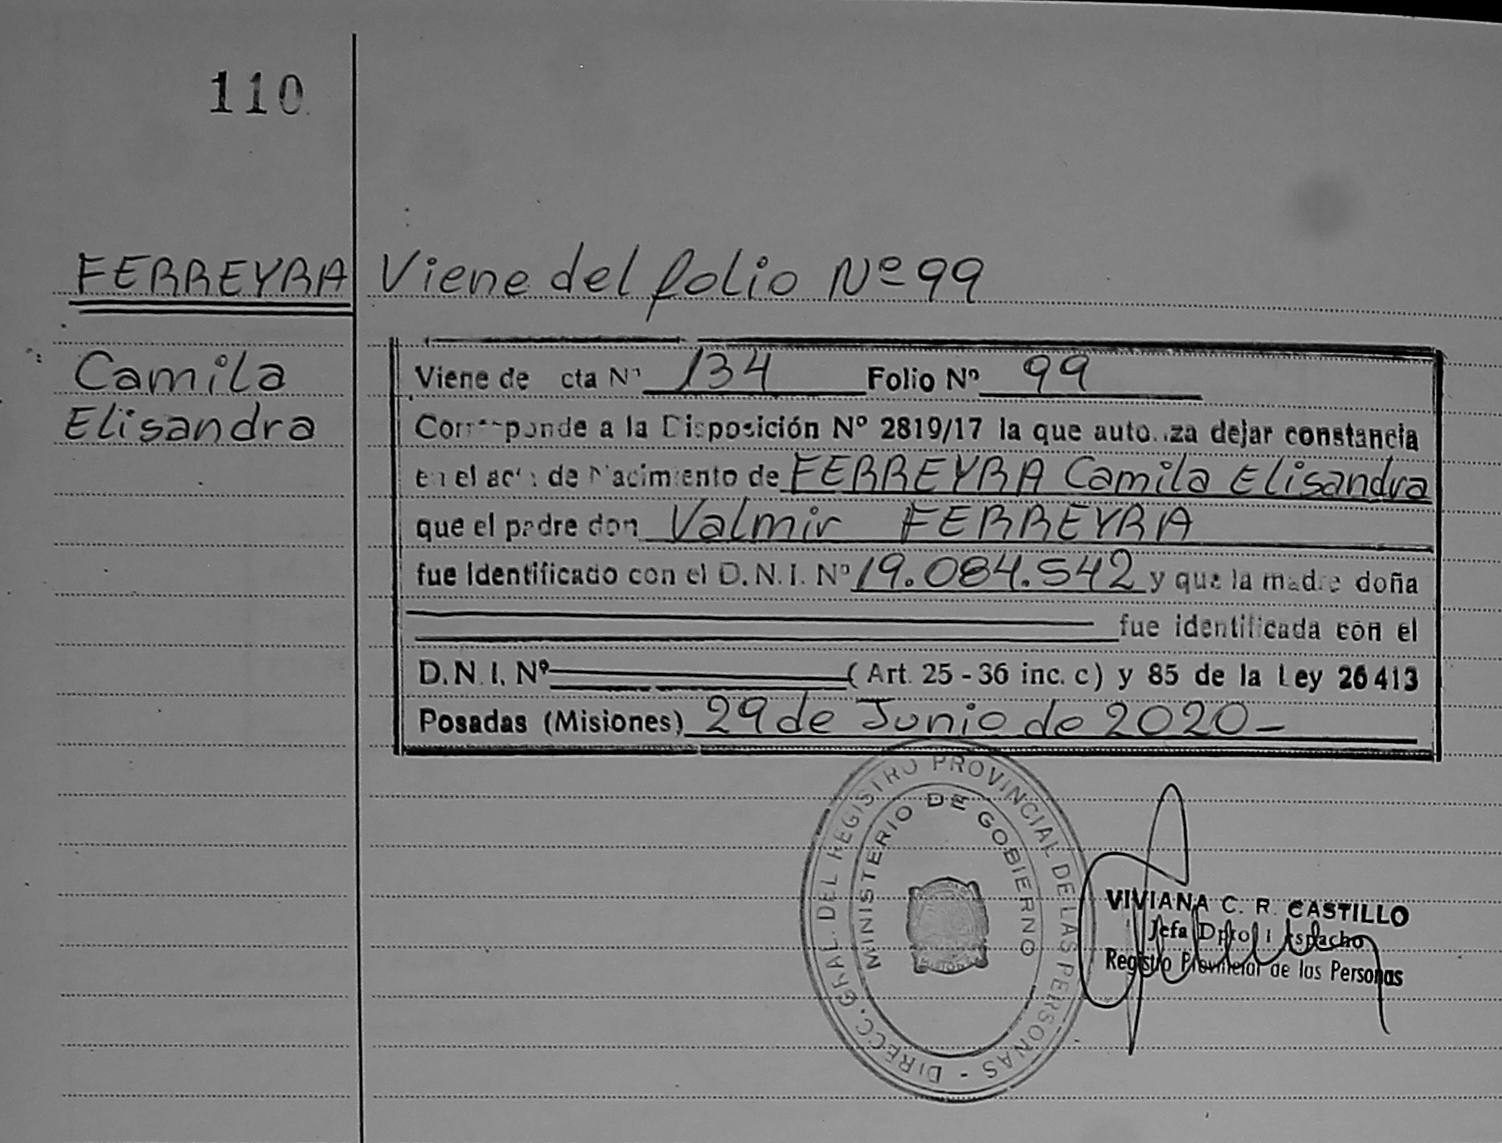 110
FERREYRA Viene del folio Nº 99
Camila
Elisandra
Viene de cta Nº 134 Folio Nº 99
Corresponde a la Disposición Nº 2819/17 la que autoriza dejar constancia
en el acta de Nacimiento de FERREYRA Camila Elisandra
que el padre don Valmir FERREYRA
fue identificado con el D.N.I. Nº 19.084.542 y que la madre doña
fue identificada con el
D.N.I. Nº (Art. 25 - 36 inc. c) y 85 de la Ley 26413
Posadas (Misiones) 29 de Junio de 2020 -
DIRECC. GRAL. DEL REGISTRO PROVINCIAL DE LAS PERSONAS -
MINISTERIO DE GOBIERNO
MISIONES
VIVIANA C. R. CASTILLO
Jefa Dpto. Despacho
Registro Provincial de las Personas